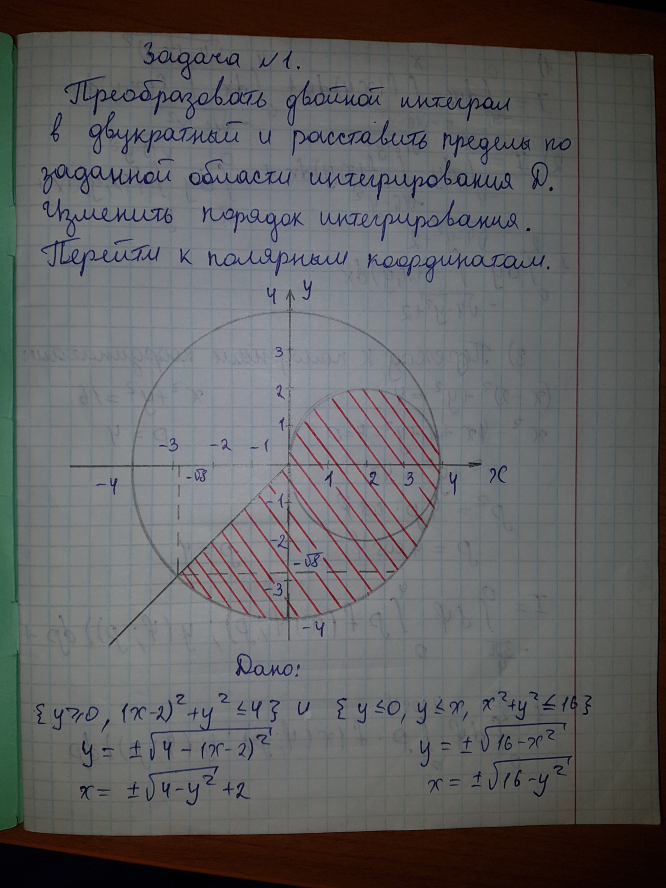 Задача №1.
Преобразовать двойной интеграл
в двукратный и расставить пределы по
заданной области интегрирования D.
Изменить порядок интегрирования.
Перейти к полярным координатам.
4 y
3
2
1
-3 -2 -1
-4 -√8 1 2 3 4 x
-1
-2
-√8
-3
-4
Дано:
{y≥0, (x-2)²+y²≤4} и {y≤0, y≤x, x²+y²≤16}
y = ±√(4-(x-2)²) y = ±√(16-x²)
x = ±√(4-y²) +2 x = ±√(16-y²)